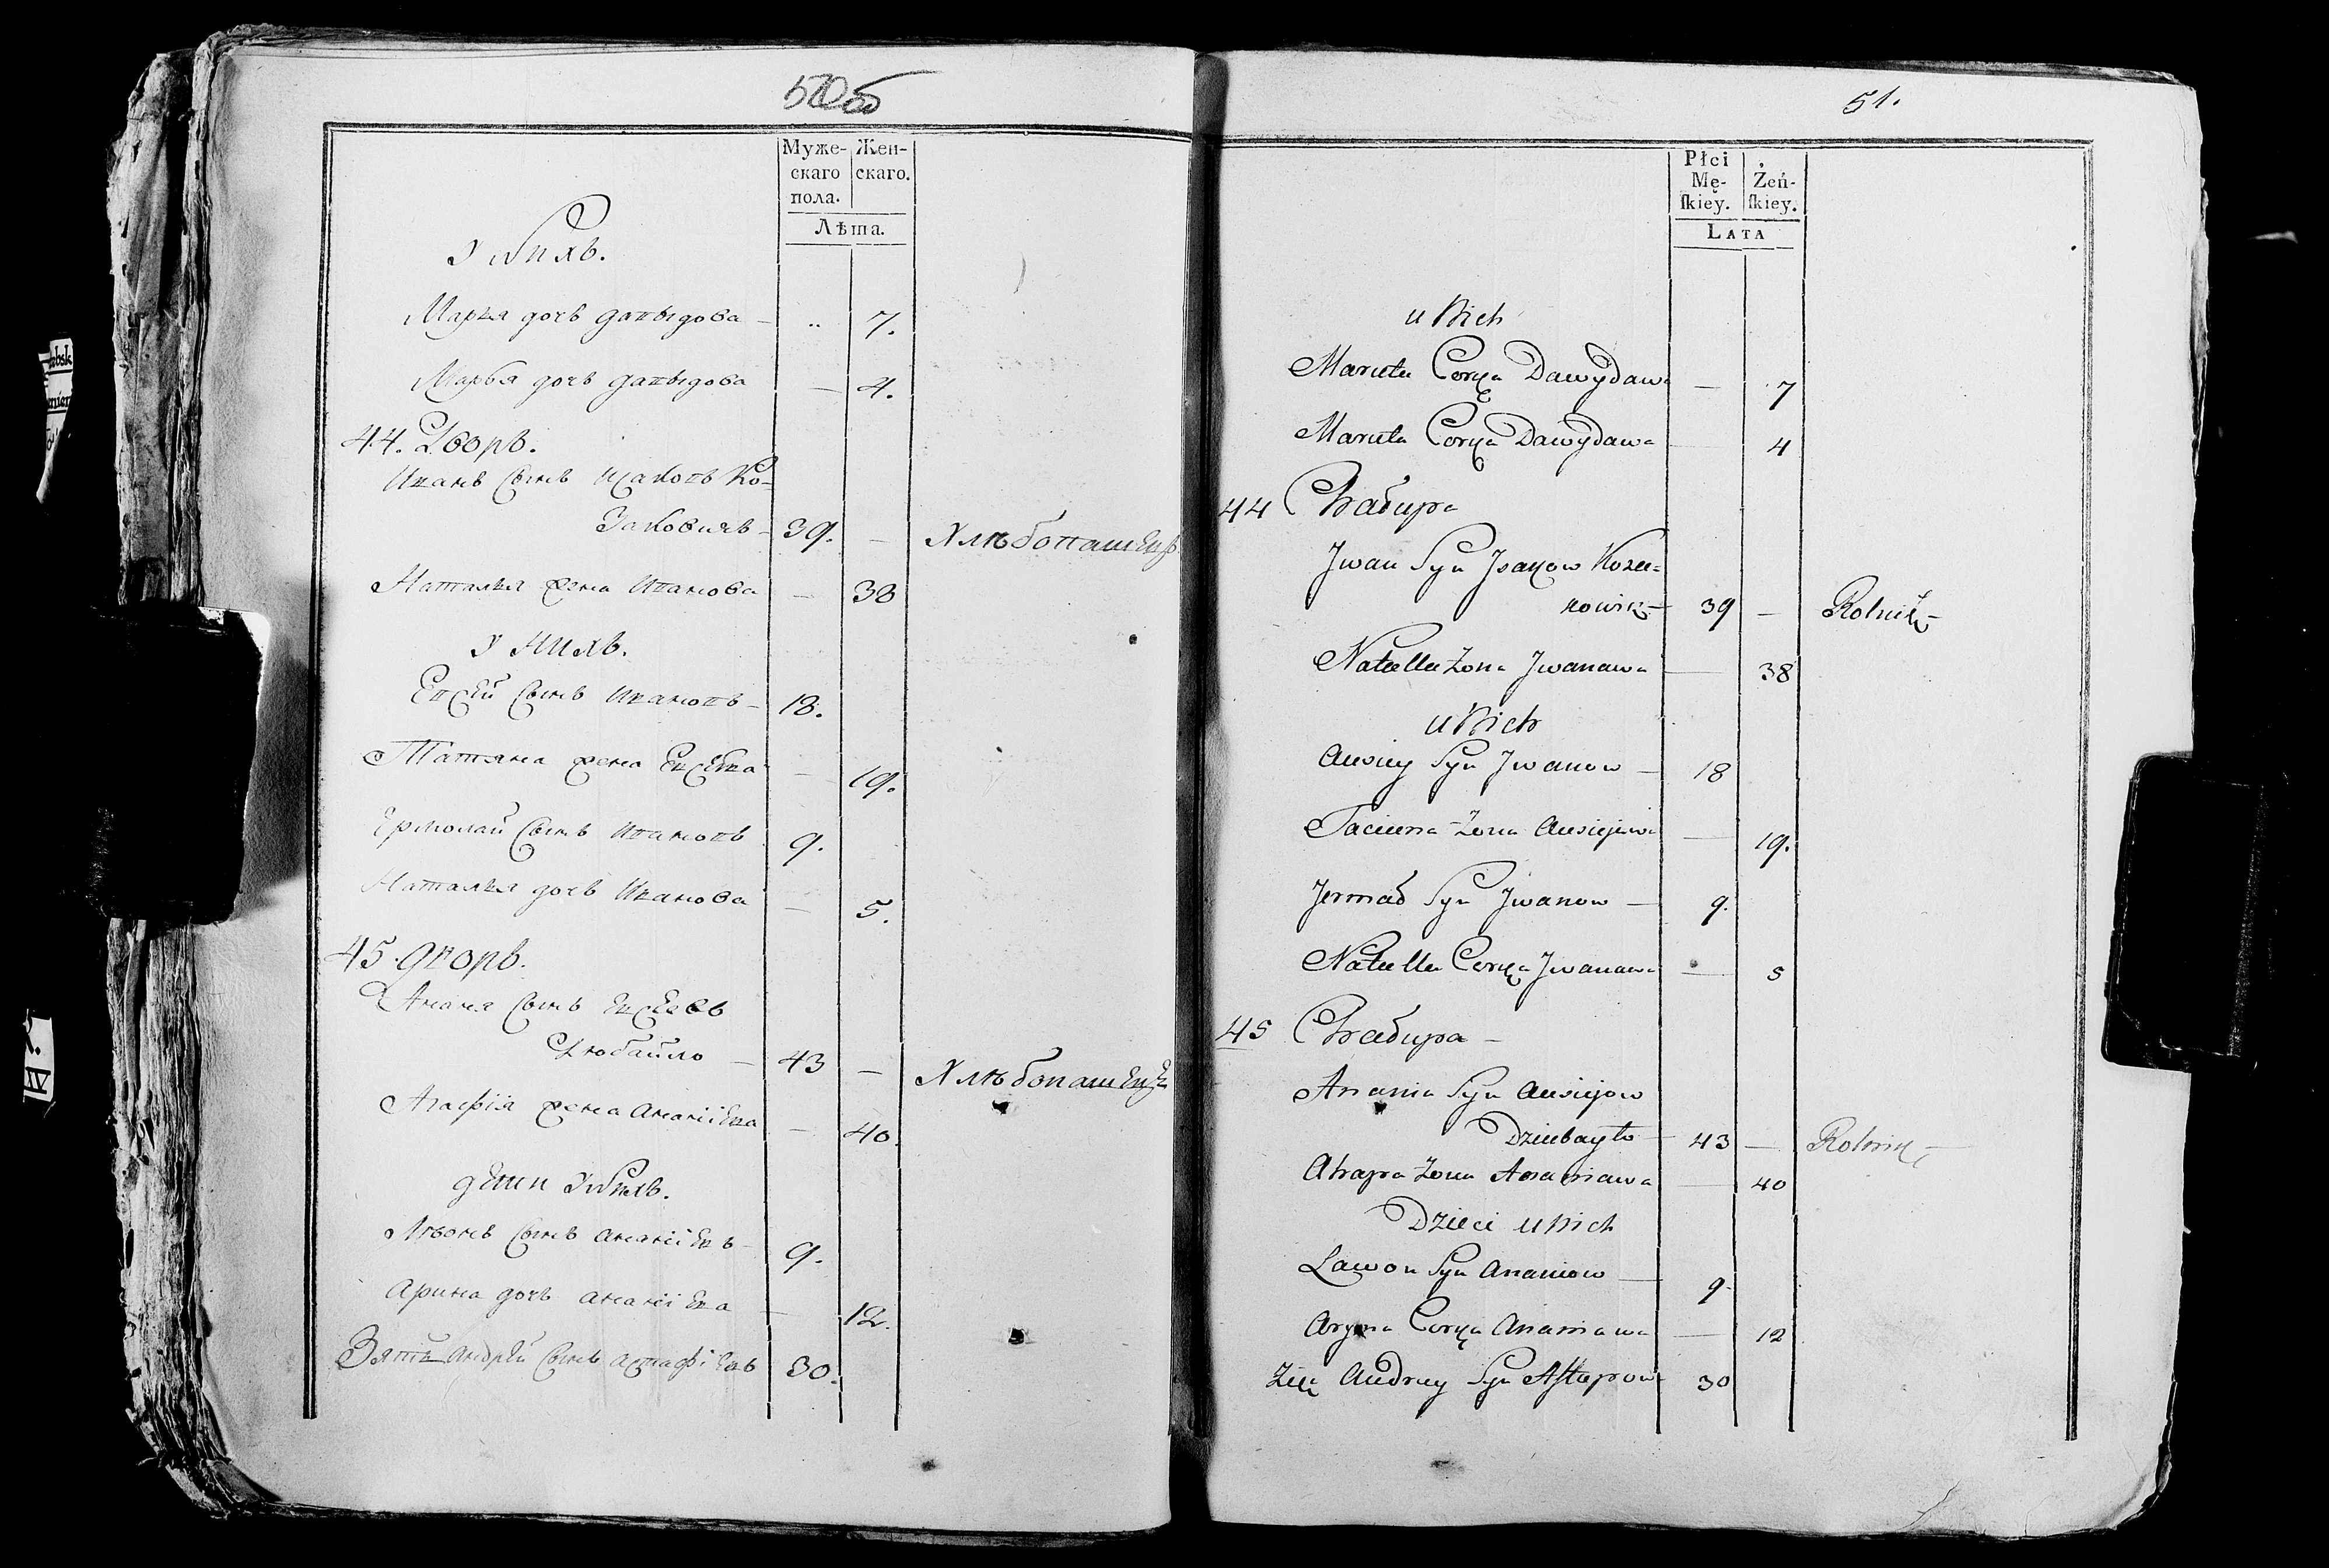 50об
Муже-
скаго
пола.
Жен-
скаго.
Лѣта.
У нихъ.
Марья дочь давыдова – .. 7.
Марья дочь давыдова — 4.
44. Дворъ.
Иванъ Сынъ Исаковъ Ко-
заковичь – 39. – Хлѣбопашецъ
Наталья жена Иванова – 38
У нихъ.
Евсѣй Сынъ Ивановъ – 18.
Татяна жена Евсѣева – 19.
Ермолай Сынъ Ивановъ 9.
Наталья дочь Иванова – 5.
45. дворъ.
Ананя Сынъ Евсеевъ
Дзюбайло – 43 – Хлѣбопашецъ
Агафія жена Ананіева – 40.
дѣти У нихъ.
Лявонъ Сынъ ананіевъ – 9.
Арина дочь ананіева – 12.
Зять андрѣй Сынъ астафіевъ 30.
51.
Płci
Mę-
ſkiey.
Żeń-
ſkiey.
Lata
u Nich
Maruta Corka Dawydawa — 7
Maruta Corka Dawydawa — 4
44 Chałupa
Jwan Syn Jsakow Koza=
kowicz – 39 – Rolnik
Natalla Żona Jwanawa — 38
u Nich
Ausiey Syn Jwanow – 18
Taciana Żona Ausiejewa — 19.
Jermał Syn Jwanow — 9.
Natalla Corka Jwanawa — 5
45 Chałupa –
Anania Syn Ausiejow
Dziubayło – 43 — Rolnik –
Ahapa Żona Ananiawa — 40
Dzieci u Nich
Lawon Syn Ananiow — 9.
Aryna Corka Ananiawa — 12
Zięć Andrey Syn Aſtapow – 30